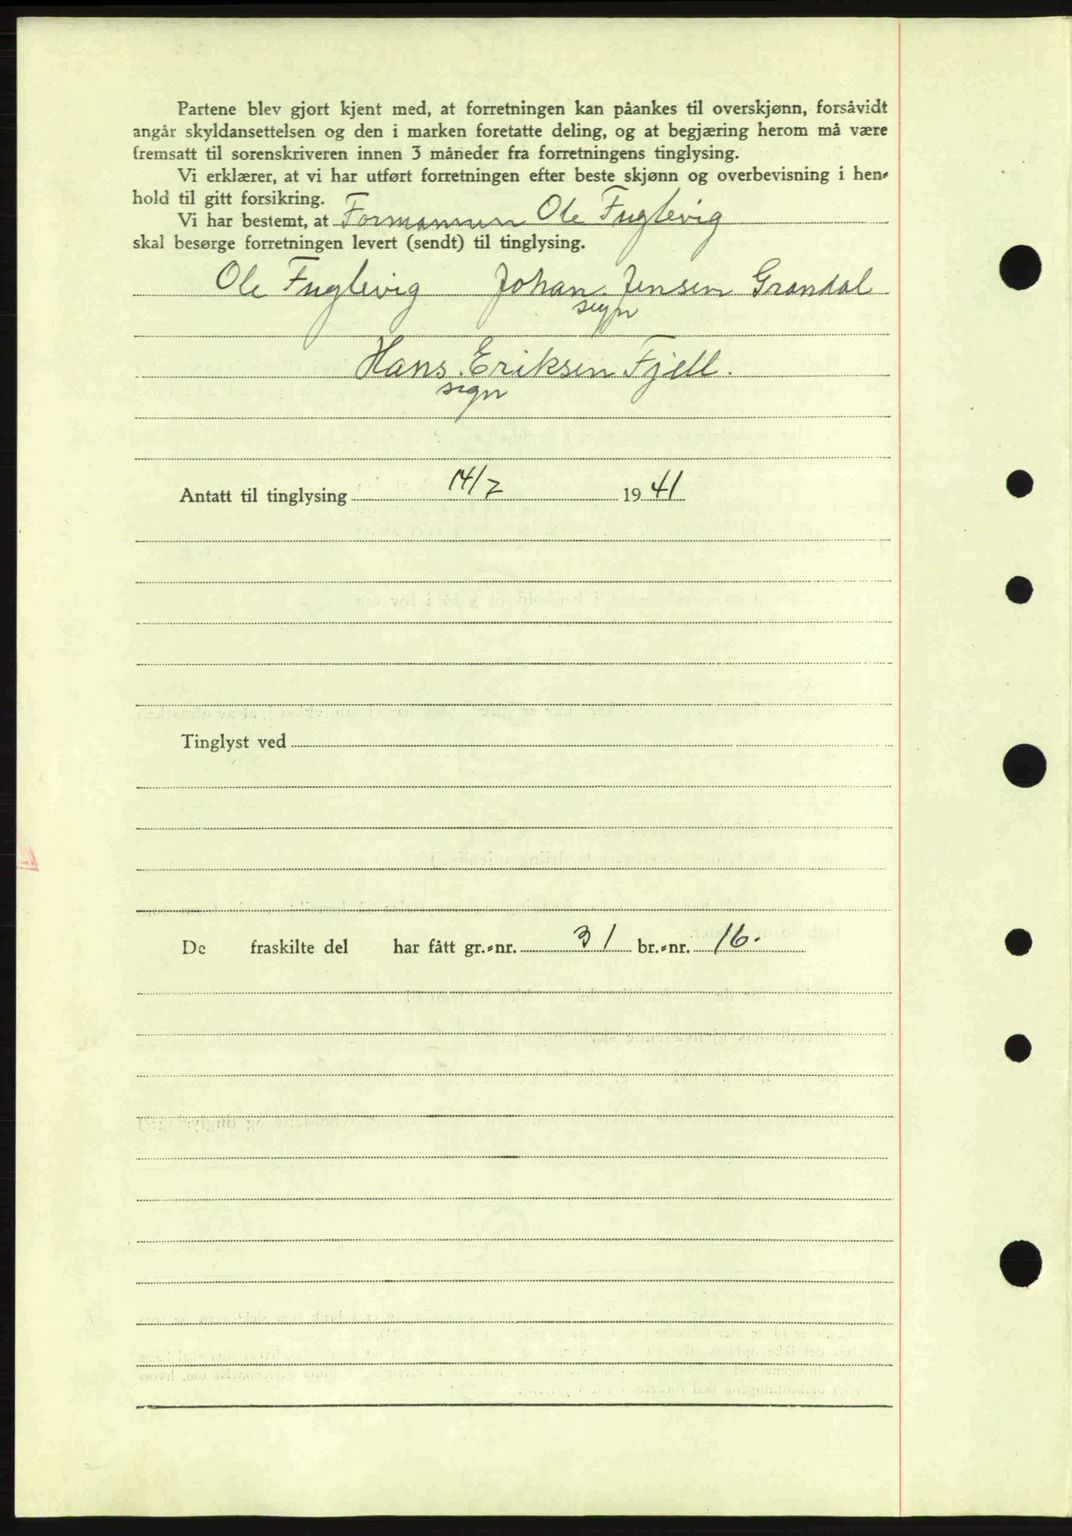 Partene blev gjort kjent med, at forretningen kan påankes til overskjønn, forsåvidt
angår skyldansettelsen og den i marken foretatte deling, og at begjæring herom må være
fremsatt til sorenskriveren innen 3 måneder fra forretningens tinglysing.
Vi erklærer, at vi har utført forretningen efter beste skjønn og overbevisning i hen-
hold til gitt forsikring.
Vi har bestemt, at Formannen Ole Fuglevig
skal besørge forretningen levert (sendt) til tinglysing.
Ole Fuglevig Johan Jensen Grandal
sign
Hans Eriksen Fjell.
sign
Antatt til tinglysing 14/7 1941
Tinglyst ved
De fraskilte del har fått gr.-nr. 31 br.-nr. 16.